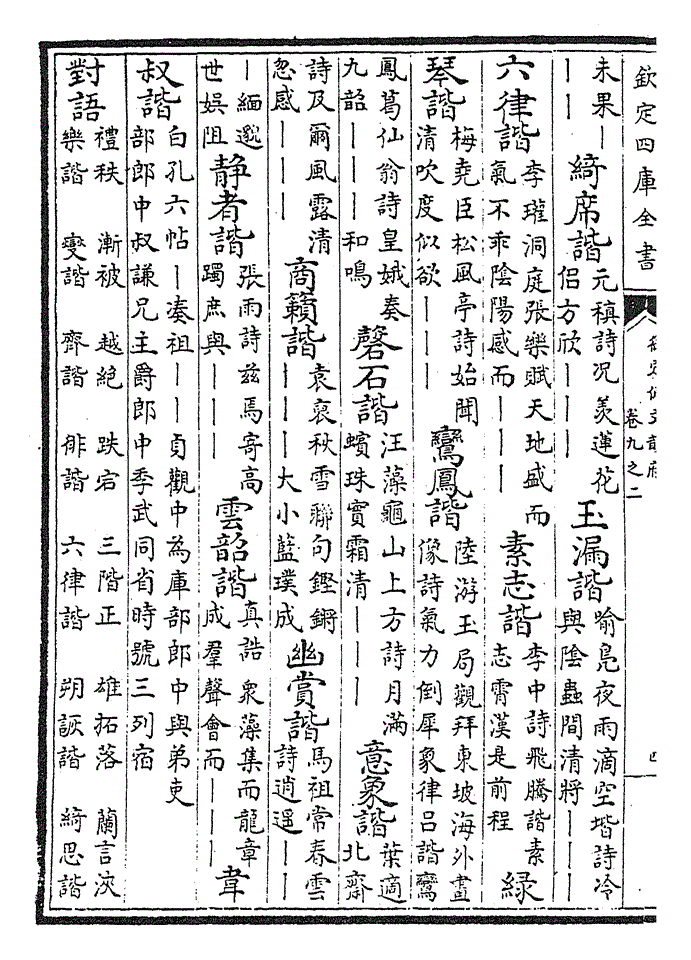 欽定四庫全書 御定佩文韻府 卷九之二 四
未果丨丨丨丨 綺席諧 元稹詩况羨蓮花侣方欣丨丨丨 玉漏諧 喻鳧夜雨滴空堦詩冷與陰蟲間清將丨丨丨
六律諧 李瓘洞庭張樂賦天地盛而氣不乖陰陽感而丨丨丨 素志諧 李中詩飛騰諧素志霄漢是前程 緑
琴諧 梅堯臣松風亭詩始聞清吹度似欲丨丨丨 鸞鳳諧 陸游玉局觀拜東坡海外畫像詩氣力倒犀象律吕諧鸞
鳳葛仙翁詩皇娥奏九韶丨丨和鳴 磬石諧 汪藻龜山上方詩月滿蠙珠實霜清丨丨丨 意象諧 葉適北齋
詩及爾風露清忽感丨丨丨 商籟諧 袁裒秋雪聯句鏗鏘丨丨丨大小藍璞成 幽賞諧 馬祖常春雲詩逍遥丨丨
丨緬邈世娱阻 静者諧 張雨詩兹焉寄高躅庶與丨丨丨 雲韶諧 真誥衆藻集而龍章成羣聲會而丨丨丨 韋
叔諧 白孔六帖丨湊祖丨丨貞觀中為庫部郎中與弟吏部郎中叔謙兄主爵郎中季武同省時號三列宿
對語 禮秩 樂諧 漸被 變諧 越絶 齊諧 跌宕 俳諧 三階正 六律諧 雄拓落 朔詼諧 蘭言浹 綺思諧